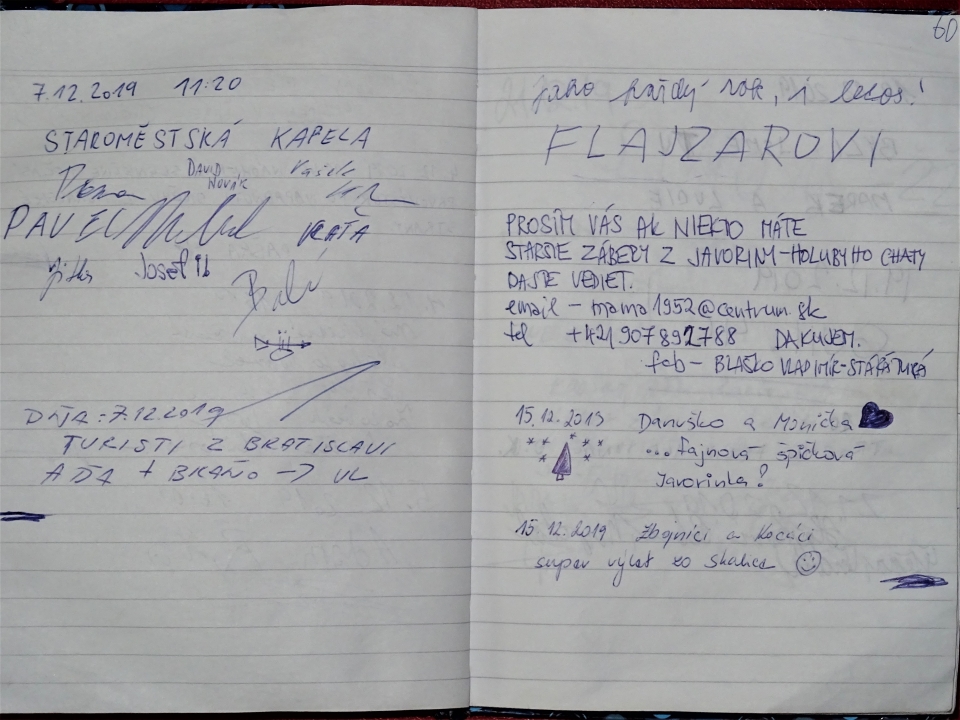 7.12.2019 11:20
STAROMĚSTSKÁ KAPELA
DAVID NOVÁK
Vašek
PAVEL
KAŤA
Jitka Josef
DŇA: 7.12.2019
TURISTI Z BRATISLAVI
AĎA + BRAŇO →
60
jako každý rok, i letos!
FLAJZAROVI
PROSÍM VÁS AK NIEKTO MÁTE
STARŠIE ZÁBERY Z JAVORINY-HOLUBYHO CHATY
DAJTE VEDIET.
email - mama1952@centrum.sk
tel +421907892788 DAKUJEM.
fcb - BLAŠKO VLADIMÍR-STARÁ TURÁ
15.12.2019 Danuško a Monička
...fajnová špičková
Javorinka!
15.12.2019 Zbojníci a Kocáci
super výlet zo Skalice